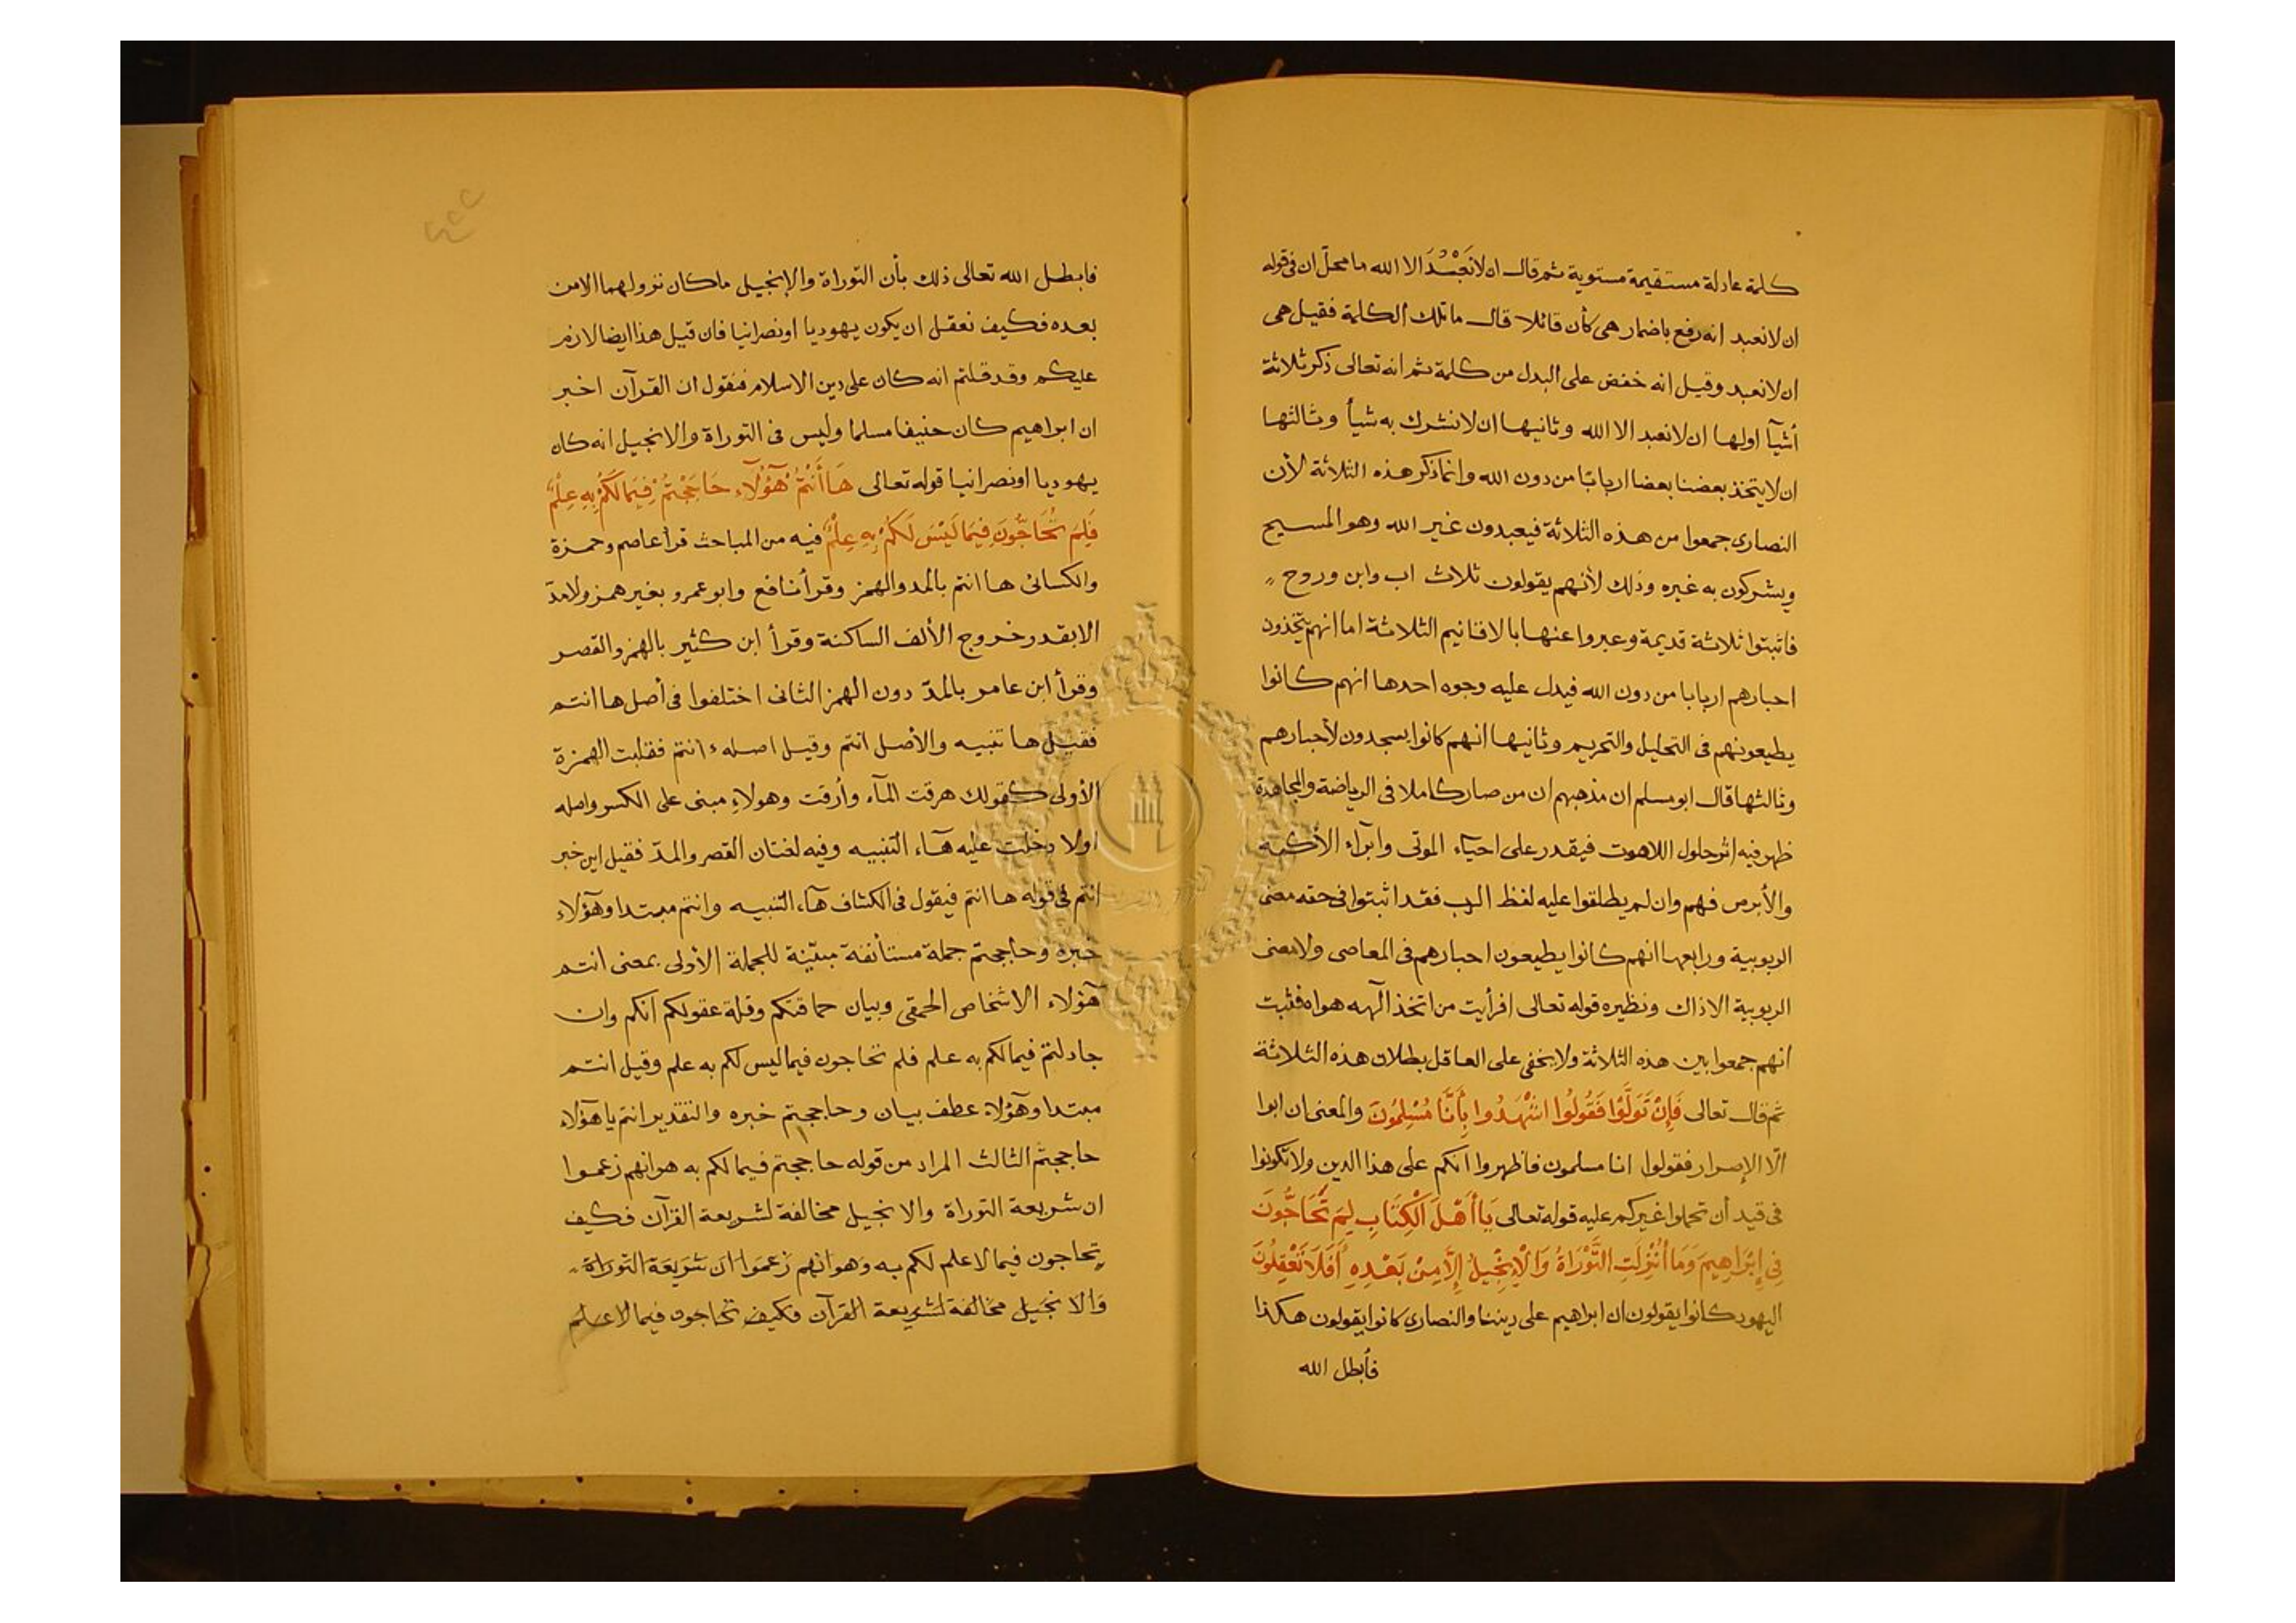 كلمة عادلة مستقيمة مستوية ثم قال ان لا نَعْبُدَ الا الله ما محلّ ان فى قوله
ان لا نعبد انه رفع باضمار هى كأن قائلا قال ما تلك الكلمة فقيل هى
ان لا نعبد وقيل انه خفض على البدل من كلمة ثم انه تعالى ذكر ثلاثة
أشيآ اولها ان لا نعبد الا الله وثانيها ان لا نشرك به شيأ وثالثها
ان لا يتخذ بعضنا بعضا اربابًا من دون الله وانما ذكر هذه الثلاثة لأن
النصارى جمعوا من هذه الثلاثة فيعبدون غير الله وهو المسيح
ويشركون به غيره وذلك لأنهم يقولون ثلاث اب وابن وروح
فاثبتوا ثلاثة قديمة وعبروا عنها بالاقانيم الثلاثة اما انهم يتّخذون
احبارهم اربابا من دون الله فيدل عليه وجوه احدها انهم كانوا
يطيعونهم فى التحليل والتحريم وثانيها انهم كانوا يسجدون لأحبارهم
وثالثها قال ابو مسلم ان مذهبهم ان من صار كاملا فى الرياضة والمجاهدة
ظهر فيه اثر حلول اللاهوت فيقدر على احيآء الموتى وابرآء الأكمه
والأبرص فهم وان لم يطلقوا عليه لفظ الرب فقد اثبتوا فى حقه معنى
الربوبية ورابعها انهم كانوا يطيعون احبارهم فى المعاصى ولا معنى
الربوبية الا ذاك ونظيره قوله تعالى افرأيت من اتخذ آلهه هواه فثبت
انهم جمعوا بين هذه الثلاثة ولا يخفى على العاقل بطلان هذه الثلاثة
ثم قال تعالى فَإِنْ تَوَلَّوْا فَقُولُوا اشْهَدُوا بِأَنَّا مُسْلِمُونَ والمعنى ان ابوا
الّا الإصرار فقولوا انا مسلمون فاظهروا انكم على هذا الدين ولا تكونوا
فى قيد أن تحملوا غيركم عليه قوله تعالى يَا أَهْلَ الْكِتَابِ لِمَ تُحَاجُّونَ
فِى إِبْرَاهِيمَ وَمَا أُنْزِلَتِ التَّوْرَاةُ وَالْإِنْجِيلُ إِلَّا مِنْ بَعْدِهِ أَفَلَا تَعْقِلُونَ
اليهود كانوا يقولون ان ابراهيم على ديننا والنصارى كانوا يقولون هكذا
فأبطل الله
٤٢٢
فابطل الله تعالى ذلك بأن التوراة والإنجيل ما كان نزولهما الا من
بعده فكيف نعقل ان يكون يهوديا او نصرانيا فان قيل هذا ايضا لازم
عليكم وقد قلتم انه كان على دين الاسلام فنقول ان القرآن اخبر
ان ابراهيم كان حنيفا مسلما وليس فى التوراة والانجيل انه كان
يهوديا او نصرانيا قوله تعالى هَا أَنْتُمْ هَٰؤُلَآءِ حَاجَجْتُمْ فِيمَا لَكُمْ بِهِ عِلْمٌ
فَلِمَ تُحَاجُّونَ فِيمَا لَيْسَ لَكُمْ بِهِ عِلْمٌ فيه من المباحث قرأ عاصم وحمزة
والكسائى ها انتم بالمد والهمز وقرأ نافع وابو عمرو بغير همز ولا مدّ
الا بقدر خروج الألف الساكنة وقرأ ابن كثير بالهمز والقصر
وقرأ ابن عامر بالمدّ دون الهمز الثانى اختلفوا فى أصل ها انتم
فقيل ها تنبيه والأصل انتم وقيل اصله ءانتم فقلبت الهمزة
الأولى كقولك هرقت المآء وأرقت وهولاءِ مبنى على الكسر واصله
اولا دخلت عليه هآء التنبيه وفيه لغتان القصر والمدّ فقيل اين خبر
انتم فى قوله ها انتم فيقول فى الكشاف هآء التنبيه وانتم مبتدا وهؤلاء
خبره وحاججتم جملة مستأنفة مبيّنة للجملة الأولى بمعنى انتم
هؤلاء الاشخاص الحمقى وبيان حماقتكم وقلة عقولكم انكم وان
جادلتم فيما لكم به علم فلم تحاجون فيما ليس لكم به علم وقيل انتم
مبتدا وهؤلاء عطف بيان وحاججتم خبره والتقدير انتم يا هؤلاء
حاججتم الثالث المراد من قوله حاججتم فيما لكم به هو انهم زعموا
ان شريعة التوراة والانجيل مخالفة لشريعة القرآن فكيف
تحاجون فيما لا علم لكم به وهو انهم زَعَمَوا ان شَريعَة التوراة
وَالانجيل مخالفة لشريعة القرآن فكيف تحاجون فيما لا علم